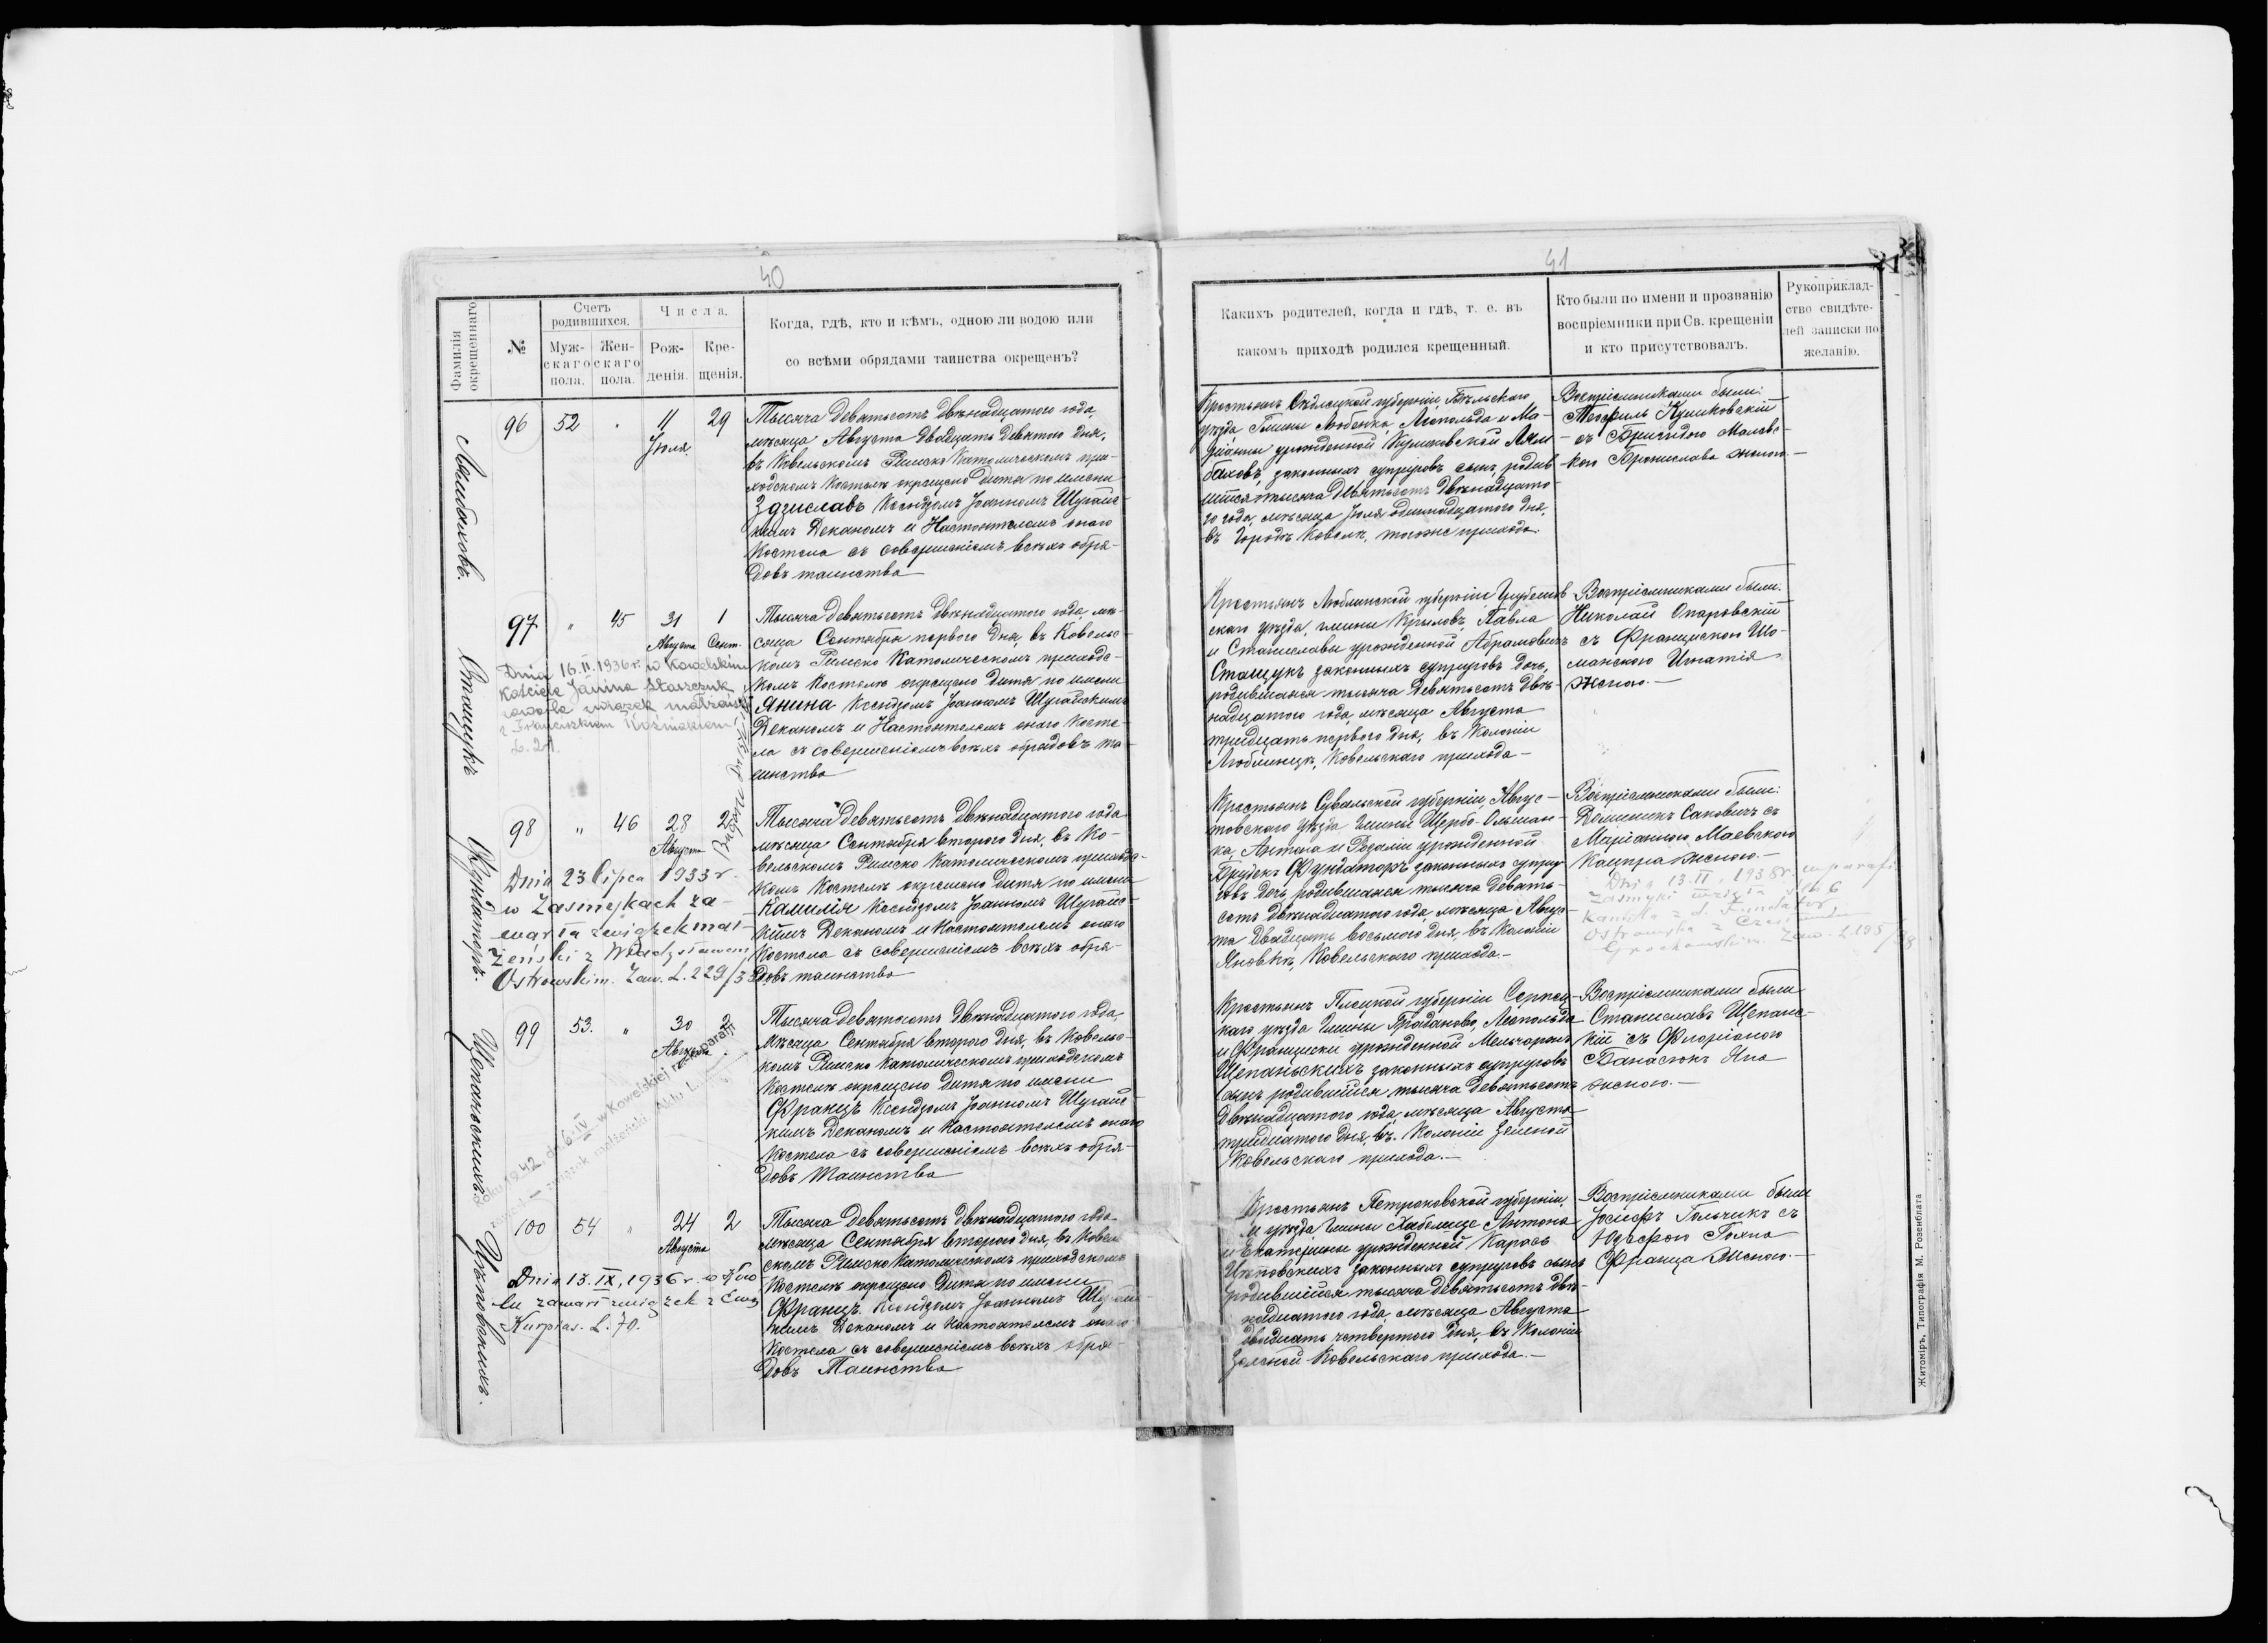 40
Фамилія окрещеннаго.
№
Счетъ родившихся.
Мужскаго пола.
Женскаго пола.
Числа.
Рожденія.
Крещенія.
Когда, гдѣ, кто и кѣмъ, одною ли водою или
со всѣми обрядами таинства окрещенъ?
96 52 11 29
Іюля
Тысяча девятьсотъ двѣнадцатого года,
мѣсяца Августа двадцать девятого дня,
въ Ковельскомъ Римско Католическомъ при-
ходскомъ Костелѣ окрещено дитя по имени
Здзиславъ Ксендзомъ Іоанномъ Шуганс-
кимъ Деканомъ и Настоятелемъ онаго
Костела съ совершеніемъ всѣхъ обря-
довъ таинства
Стащукъ
97 " 45 31 1
Августа Сент.
Dnia 16.II.1936 r. w Kowelskim
Kościele Janina Staszczuk
zawarła związek małżeński
z Franciszkiem Koźmiakiem
L. 21.
Тысяча девятьсотъ двѣнадцатого года, мѣ-
сяца Сентября первого дня, въ Ковельс-
комъ Римско Католическомъ приходс-
комъ Костелѣ окрещено дитя по имени
Янина Ксендзомъ Іоанномъ Шуганскимъ
Деканомъ и Настоятелемъ онаго Косте-
ла съ совершеніемъ всѣхъ обрядовъ та-
инства
Фундаторъ.
98 " 46 28 2
Августа
Dnia 23 lipca 1933 r.
w Zasmykach za-
warła związek mał-
żeński z Władysławem
Ostrowskim. Zaw. L. 229/33
Тысяча девятьсотъ двѣнадцатого года
мѣсяца Сентября второго дня, въ Ко-
вельскомъ Римско Католическомъ приходс-
комъ Костелѣ окрещено дитя по имени
Камилія Ксендзомъ Іоанномъ Шуганс-
кимъ Деканомъ и Настоятелемъ онаго
Костела съ совершеніемъ всѣхъ обря-
довъ таинства
Щепаньскихъ.
99 53. " 30 2
Августа
Roku 1942 d. 6.IV w Kowelskiej rz. parafji
związek małżeński Aktu L.
Тысяча девятьсотъ двѣнадцатого года,
мѣсяца Сентября второго дня, въ Ковельс-
комъ Римско Католическомъ приходскомъ
Костелѣ окрещено дитя по имени
Францъ Ксендзомъ Іоанномъ Шуганс-
кимъ Деканомъ и Настоятелемъ онаго
Костела съ совершеніемъ всѣхъ обря-
довъ Таинства
100 54 " 24 2
Августа
Dnia 13.IX.1936 r. w Kow
lu zawarł związek z Ewą
Kurpias. L. 70.
Тысяча девятьсотъ двѣнадцатого года
мѣсяца Сентября второго дня, въ Ковель
скомъ Римско Католическомъ приходскомъ
Костелѣ окрещено дитя по имени
Францъ Ксендзомъ Іоанномъ Шуганс-
кимъ Деканомъ и Настоятелемъ онаго
Костела съ совершеніемъ всѣхъ обря-
довъ Таинства
41
Какихъ родителей, когда и гдѣ, т. е. въ
какомъ приходѣ родился крещенный.
Кто были по имени и прозванію
воспріемники при Св. крещеніи
и кто присутствовалъ.
Рукоприклад-
ство свидѣте-
лей записки по
желанію.
Крестьянъ Сѣдлецкой губерніи, Бѣльскаго
уѣзда Гмины Любенка, Леопольда и Ма-
ріанны урожденной Куликовской
законныхъ супруговъ сынъ, родив
шійся тысяча девятьсотъ двѣнадцато-
го года, мѣсяца Іюля одиннадцатого дня,
въ городѣ Ковелѣ, тогоже прихода.
Воспріемниками были:
Теофиль Куликовскій
съ Бригидою
Бронислава женою.
Крестьянъ Люблинской губерніи Грубешов
скаго уѣзда, гмины Крыловъ, Павла
и Станиславы урожденной Абрамовичъ
Стащукъ законныхъ супруговъ дочь,
родившаяся тысяча девятьсотъ двѣ-
надцатого года, мѣсяца Августа
тридцать первого дня, въ Колоніи
Люблинецъ, Ковельскаго прихода.
Воспріемниками были:
Николай Опаровскій
съ Францискою Шо-
манскою Игнатія
женою.
Крестьянъ Сувалской губерніи, Авгус-
товскаго уѣзда Гмины Щербо-Ольшан-
ка, Антона и Розаліи урожденной
Фундаторъ законныхъ супру-
говъ дочь, родившаяся тысяча девять-
сотъ двѣнадцатого года, мѣсяца Авгус-
та двадцать восьмого дня, въ Колоніи
Яновкѣ, Ковельскаго прихода.
Воспріемниками были:
Доминикъ Саковичъ съ
Маріанною Маевскою
Каспра женою.
Dnia 13.II.1938 r. w parafi
Zasmyki wzięła ślub
Kamila z d. Fundator
Ostrowska z Czesławem
Grochowskim. Zaw. L. 195/38
Крестьянъ Плоцкой губерніи Серпец-
каго уѣзда Гмины Граданово, Леопольда
и Франциски урожденной
Щепаньскихъ законныхъ супруговъ
сынъ родившійся тысяча девятьсотъ
двѣнадцатого года, мѣсяца Августа
тридцатого дня, въ Колоніи Зеленой
Ковельскаго прихода.
Воспріемниками были
Станиславъ Щепанс-
кій съ Флоріаною
Банасюкъ Яна
женою.
Крестьянъ Петроковской губерніи,
и уѣзда Гмины Хабелице Антона
и Екатерины урожденной Карась
законныхъ супруговъ сынъ
родившійся тысяча девятьсотъ двѣ-
надцатого года, мѣсяца Августа
двадцать четвертого дня, въ Колоніи
Зеленой Ковельскаго прихода.
Воспріемниками были
Іосифъ Гольчикъ съ
Юзефою
Франца женою.
Житоміръ, Типографія М. Розенблата